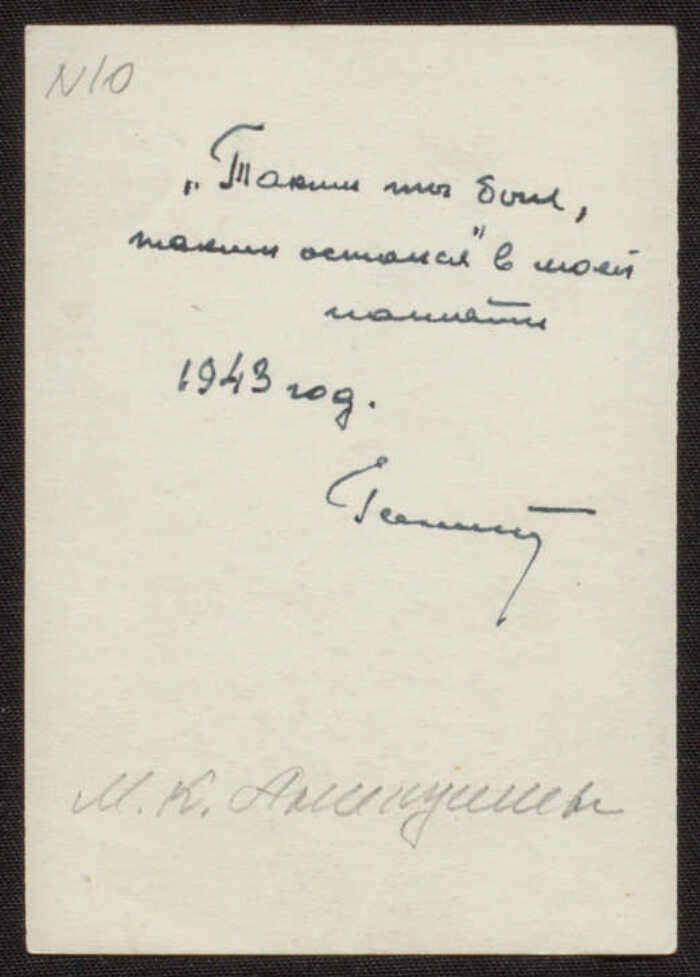 N10
„Таким ты был,
таким остался" в моей
памяти
1943 год.
М. К. Аникушин